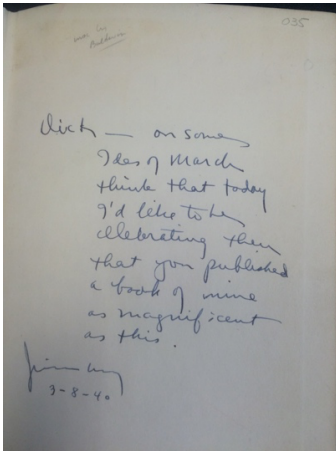 035
Dick — on some
Ides of March
think that today
I'd like to be
celebrating then
that you published
a book of mine
as magnificent
as this.
3-8-40